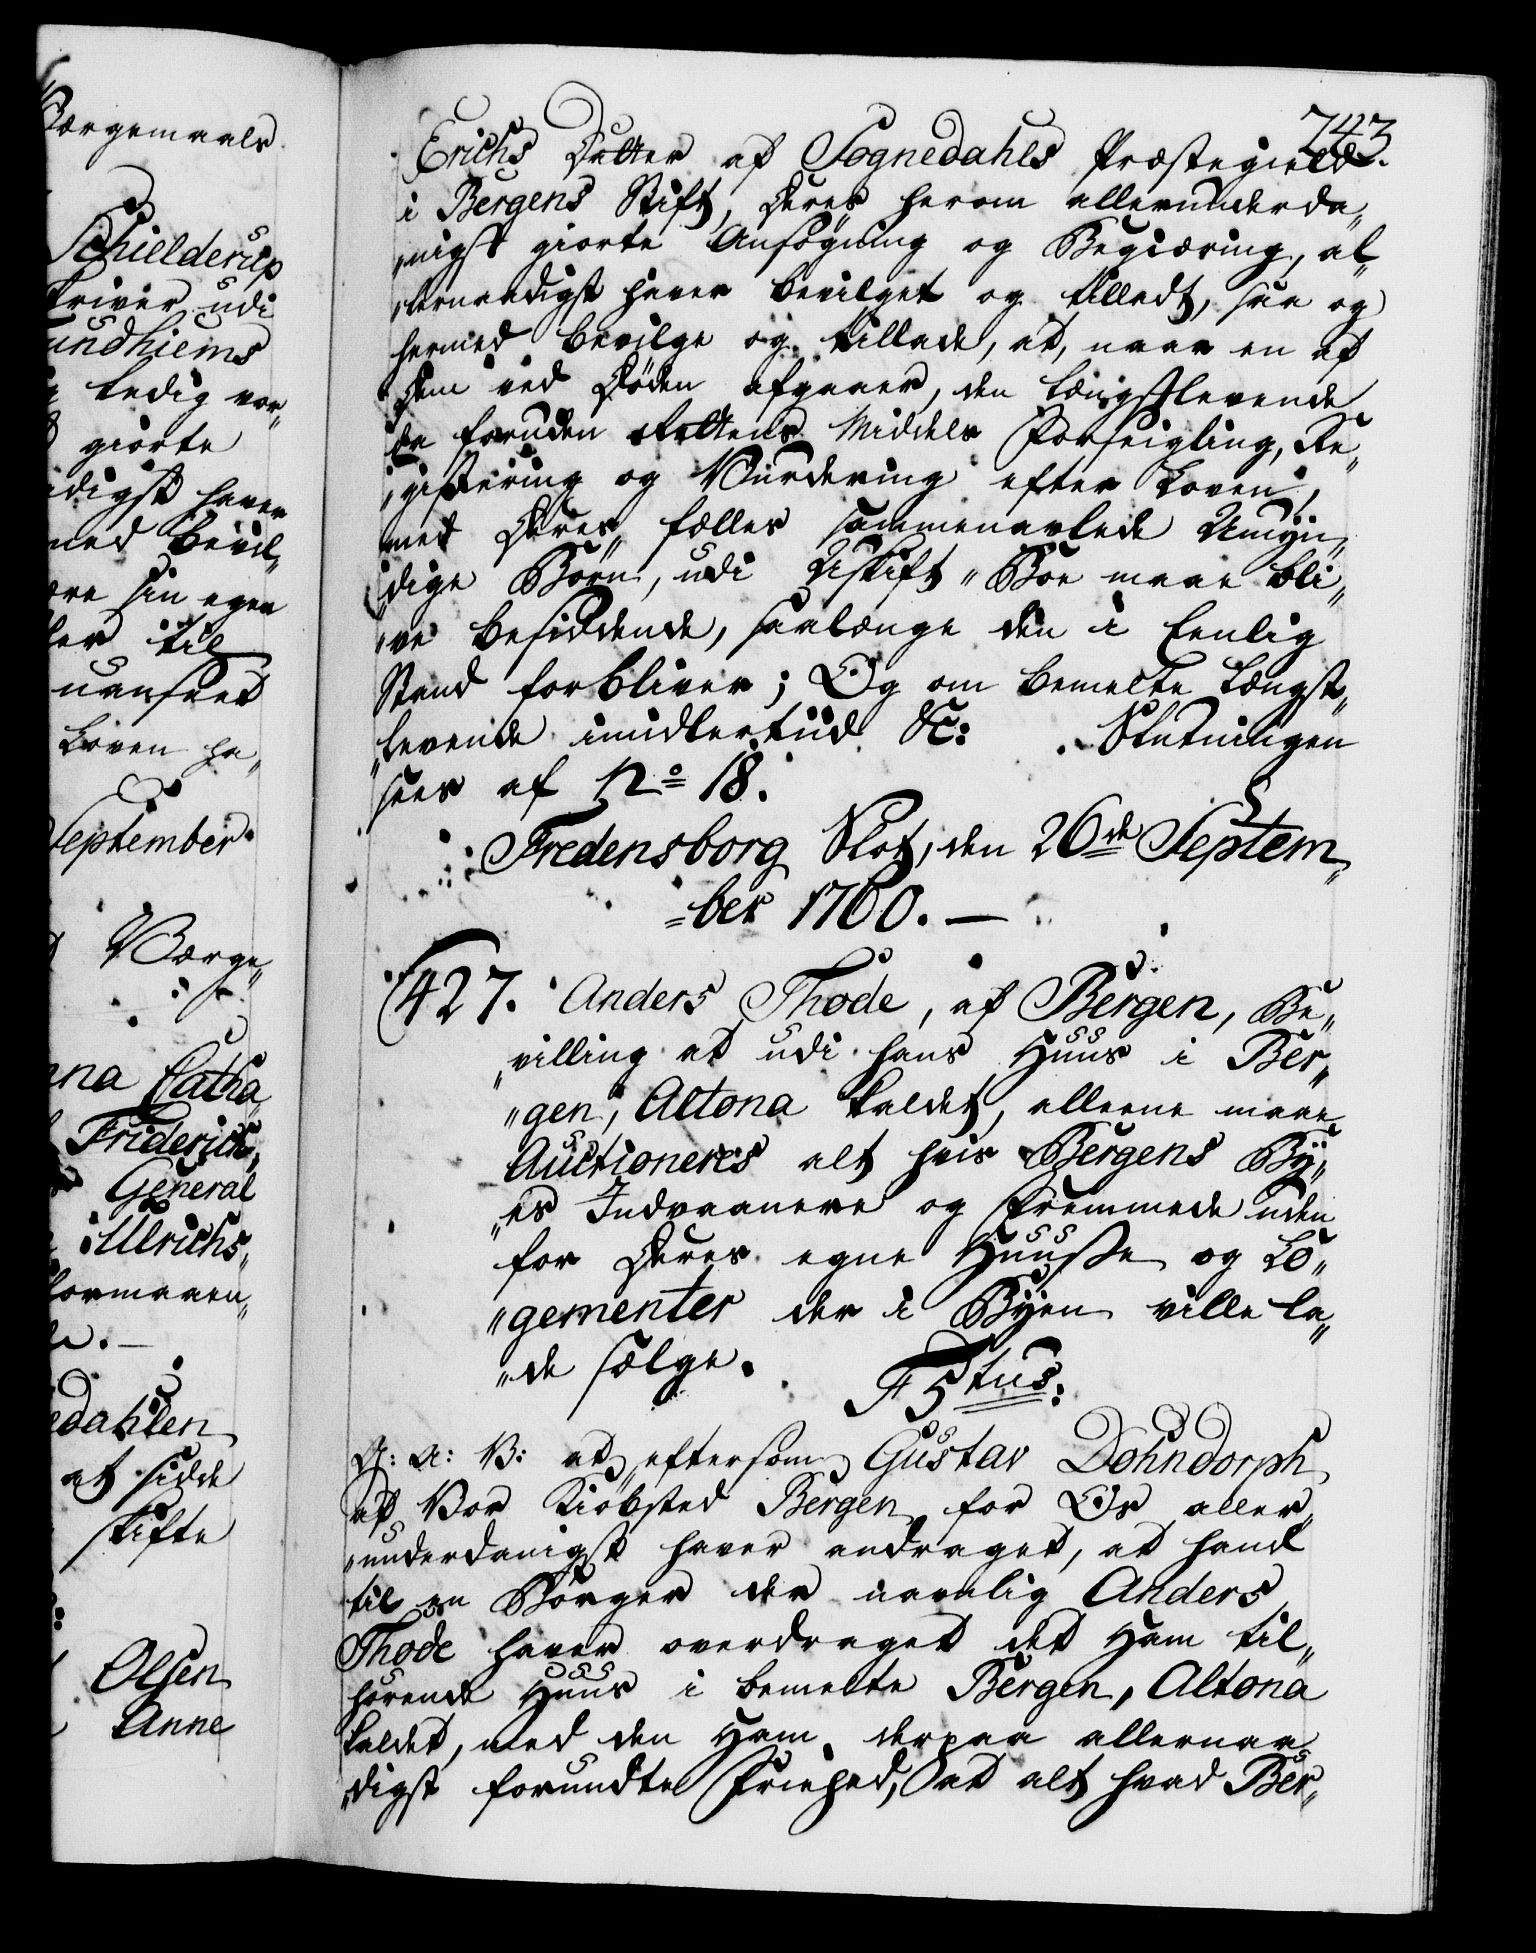 Børgemaals
Schielderup
skriver udi
Sundhiems
ledig vor„
giorte
digst haver
med bevil„
være sin egen
ler til
uanseet
Loven ha„
September
Værge„
nna Catha„
Friderich,
General
Ulrichs„
Formaaen„
de. —
edahlen
at sidde
skifte
Olsen
Anne
743.
Erichs Datter af Sognedahls Præstegield
i Bergens Stift, Deres herom allerunderda„
„nigst giorte Ansøgning og Begiæring, al„
„lernaadigst haver bevilget og tilladt, saa og
hermed bevilge og tillade, at, naar en af
Dem ved Døden afgaaer, den længstlevende
da foruden Rettens Middels Forseigling, Re„
„gistering og Vurdering efter Loven,
med Deres fælles sammenavlede Umyn„
„dige Børn, udi Uskift„ Boe maae bli„
„ve besiddende, saalænge den i Eenlig
Stand forbliver; Og om bemelte Længst„
„levende imidlertiid &c: Slutningen
sees af No 18.
Fredensborg Slot, den 26de Septem„
„ber 1760. —
427. Anders Thode, af Bergen, Be„
„villing at udi hans Huus i Ber„
„gen, Altona kaldet, alleene maae
Auctioneres alt hvis Bergens By„
„es Indvaanere og Fremmede uden
for Deres egne Huusse og Lo„
„gementer der i Byen ville la„
„de sælge.
F 5tus:
G: A: V: at, eftersom Gustav Dohndorph
af Vor Kiøbsted Bergen for Os aller„
„underdanigst haver andraget, at hand
til en Borger der navnlig Anders
Thode haver overdraget det Ham til„
hørende Huus i bemelte Bergen, Altona
kaldet, med den Ham derpaa allernaa„
„digst forundte Friehed, at alt hvad Ber„